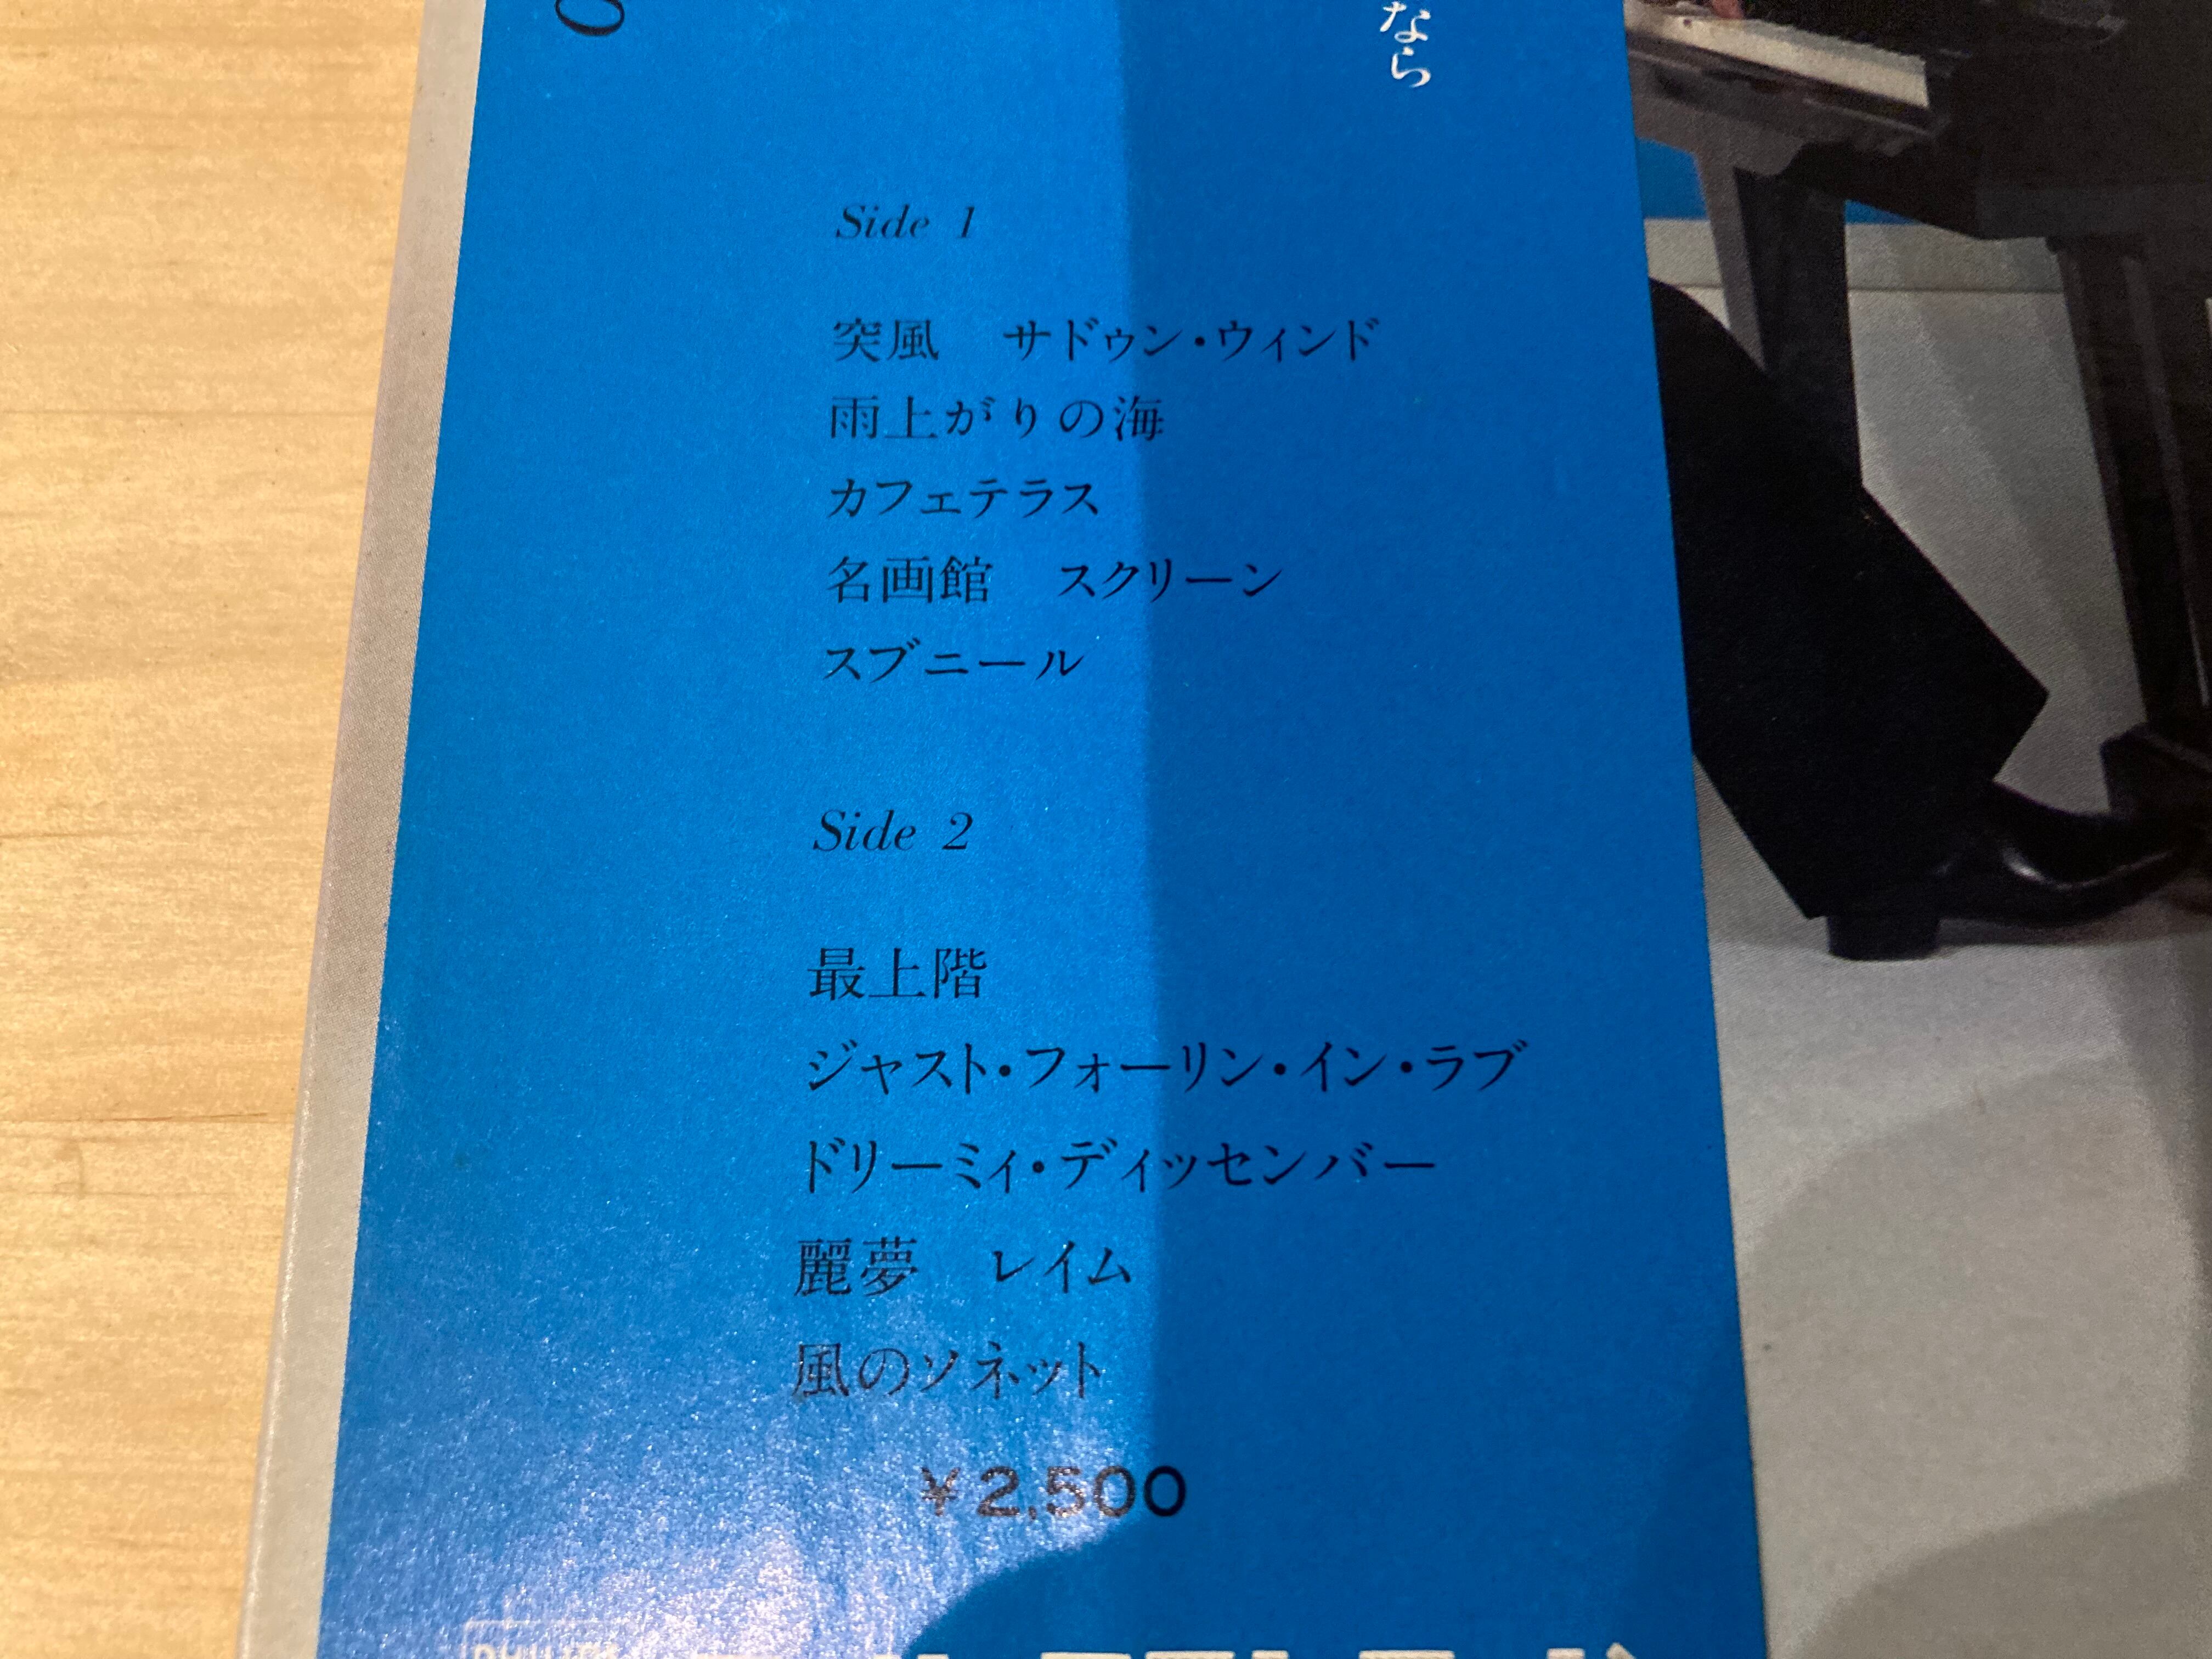 なら
Side 1
突風　サドゥン・ウィンド
雨上がりの海
カフェテラス
名画館　スクリーン
スブニール
Side 2
最上階
ジャスト・フォーリン・イン・ラブ
ドリーミィ・ディッセンバー
麗夢　レイム
風のソネット
¥2,500